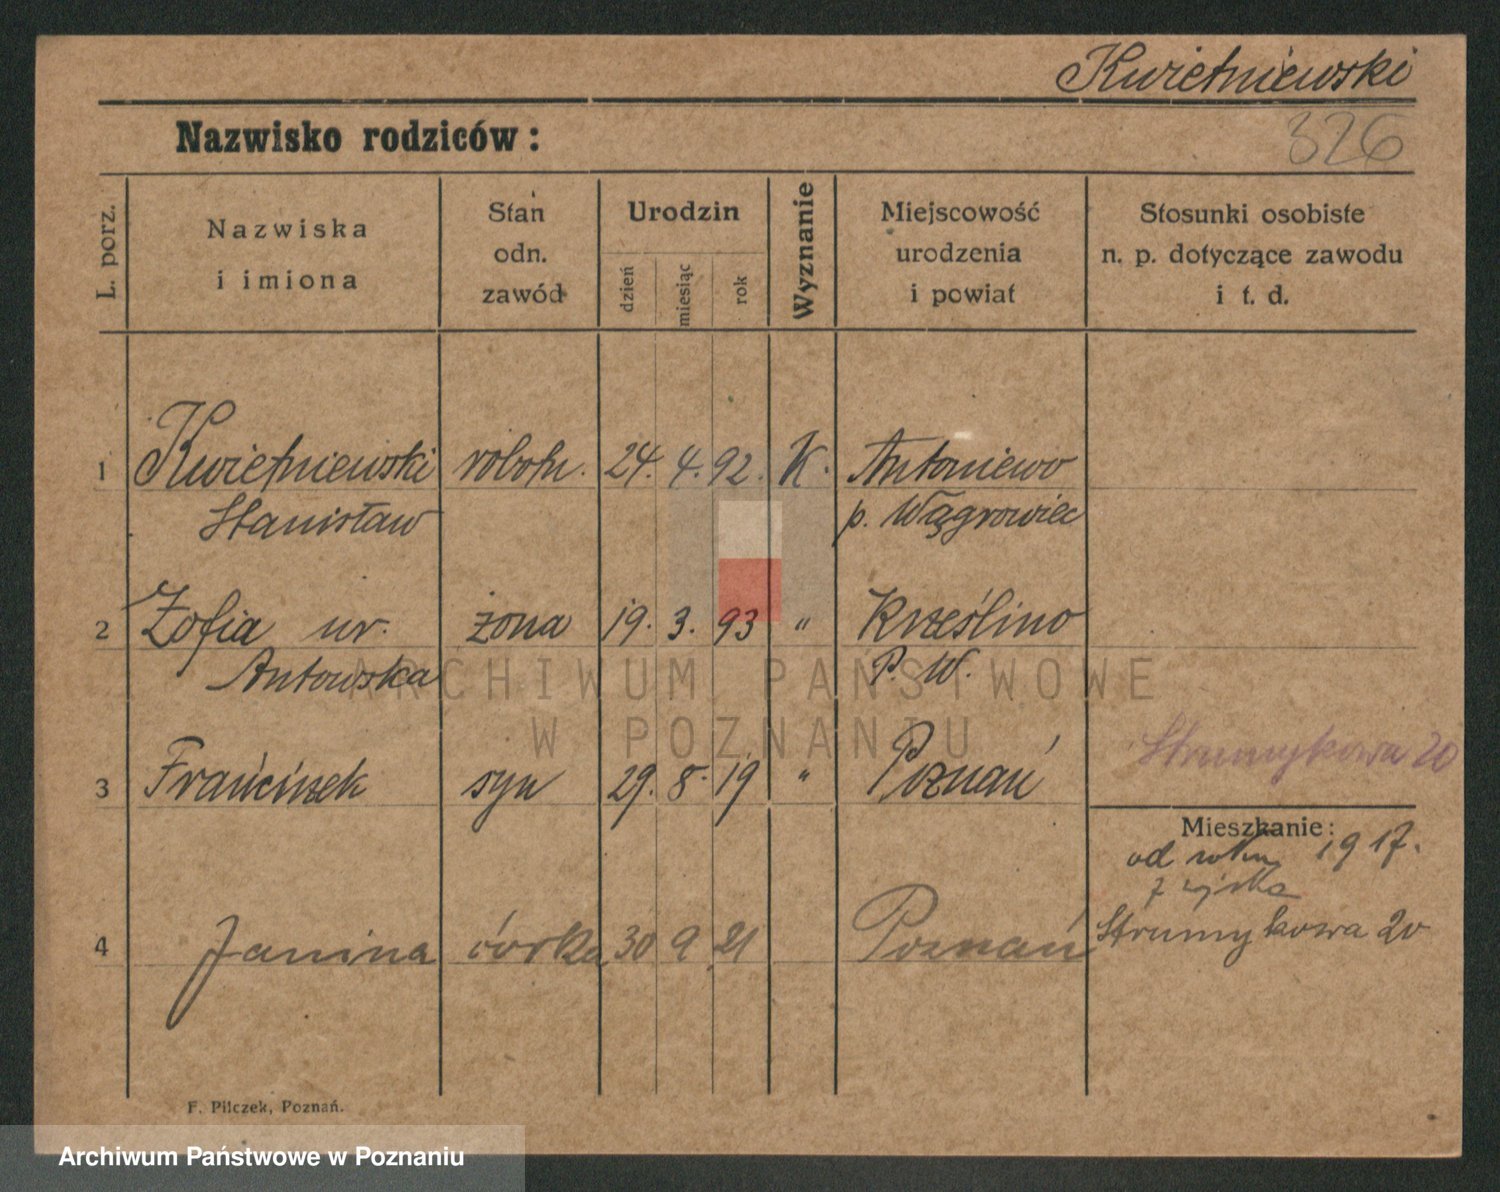 Kwietniewski
326
Nazwisko rodziców:
L. porz.
Nazwiska
i imiona
Stan
odn.
zawód
Urodzin
dzień
miesiąc
rok
Wyznanie
Miejscowość
urodzenia
i powiat
Stosunki osobiste
n. p. dotyczące zawodu
i t. d.
1 Kwietniewski robotn. 24. 4. 92. K. Antoniewo
Stanisław p. Wągrowiec
2 Zofia ur. żona 19. 3. 93 " Krześlino
Antowska P. W.
Strumykowa 20
3 Franciszek syn 29. 8. 19 " Poznań
Mieszkanie:
od roku 1917.
z wojska
Strumykowa 20
4 Janina córka 30 9 21 Poznań
F. Pilczek, Poznań.
ARCHIWUM PAŃSTWOWE
W POZNANIU
Archiwum Państwowe w Poznaniu